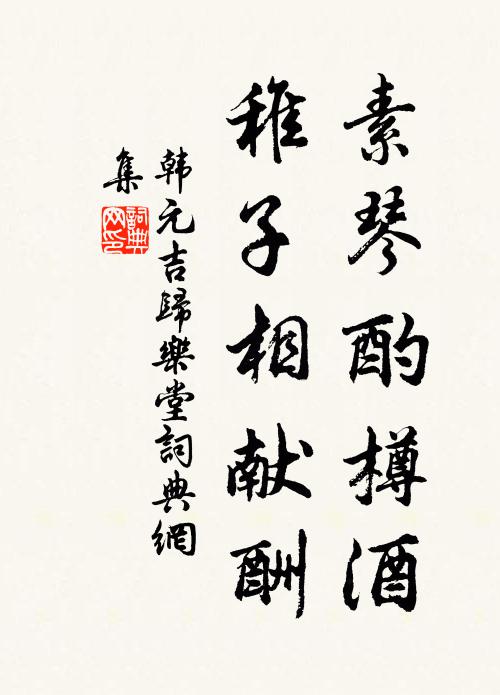 素琴酌樽酒
稚子相献酬
韩元吉歸樂堂詞典網
集
詞典網印